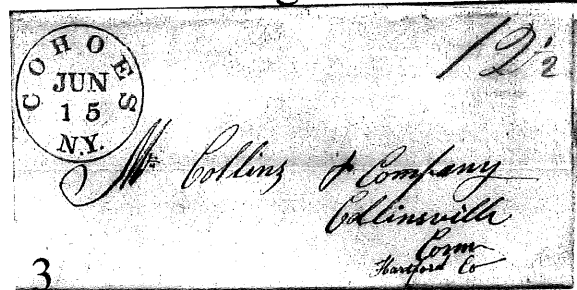 COHOES
JUN
15
N.Y.
12½
Collins & Company
Collinsville
Conn
Hartford Co
3